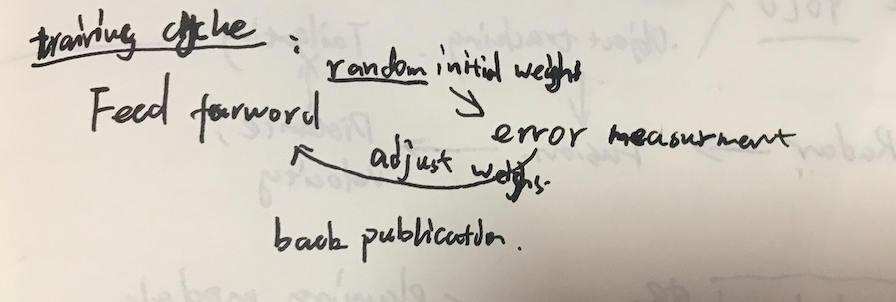 training cycle :
random initial weight
Feed forword
error measurment
adjust weighs.
back publication.